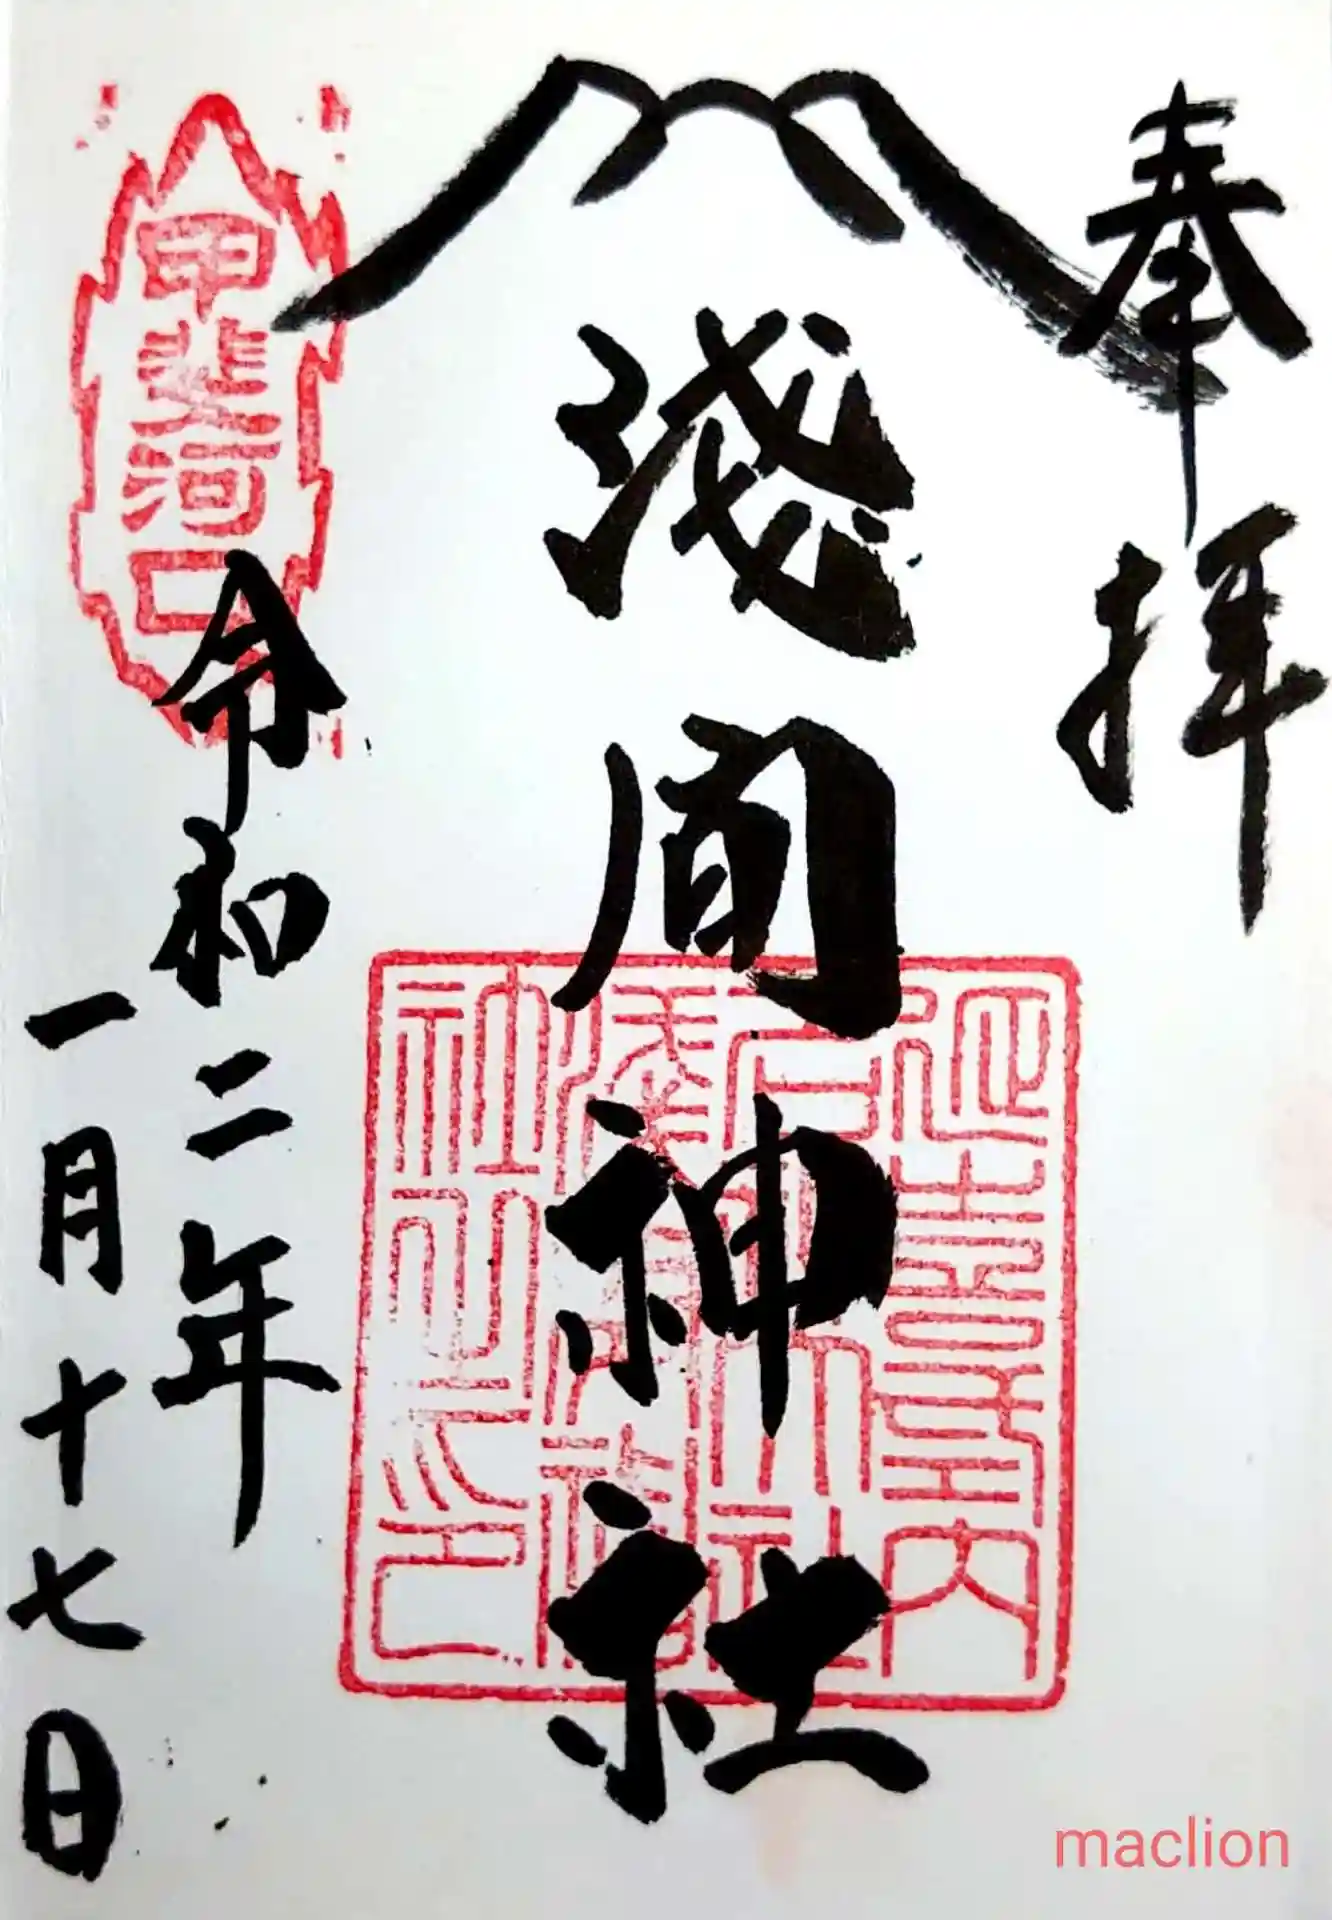 奉拝
淺間神社
甲斐河口
令和二年
一月十七日
延喜式内
名神大社
淺間神社
之印
maclion